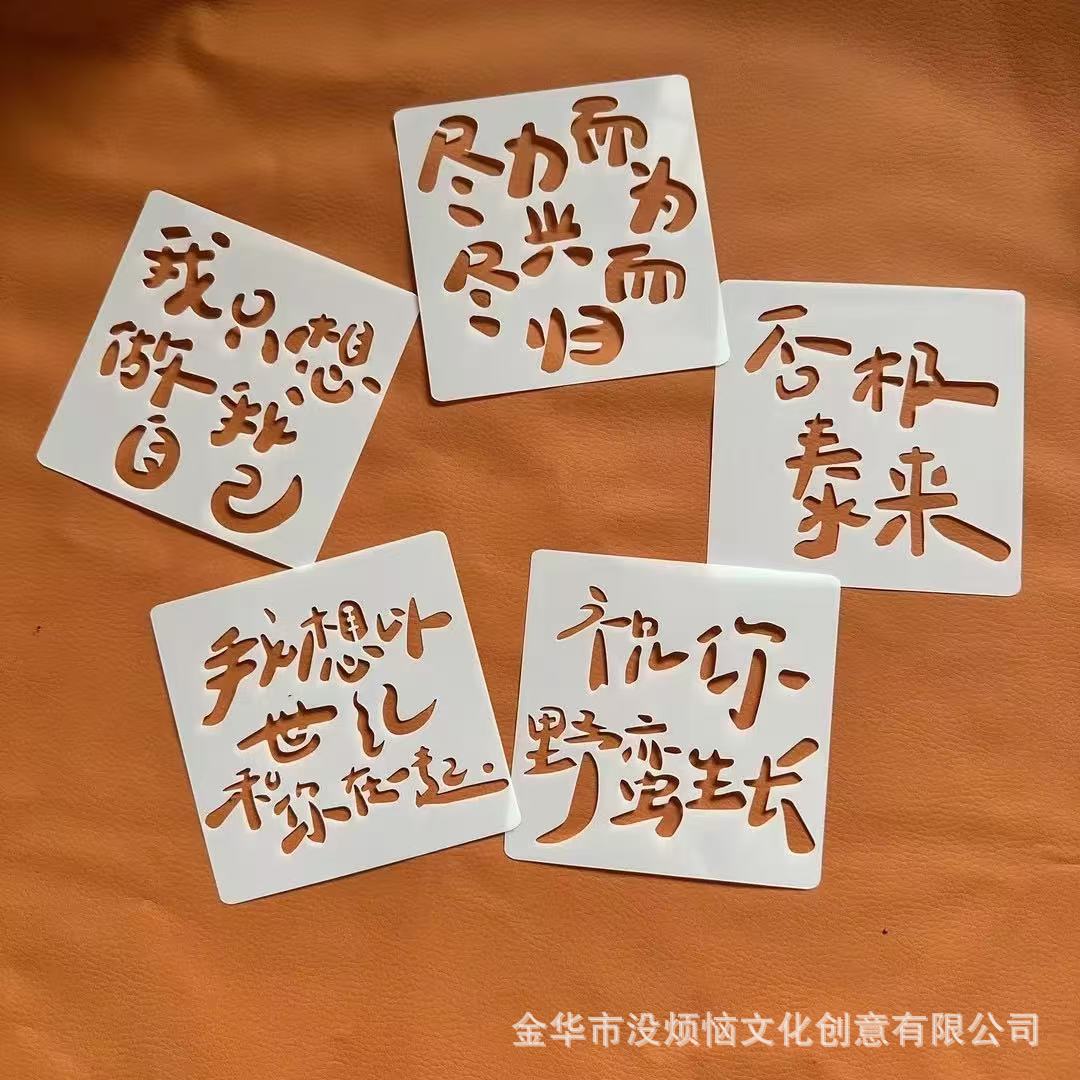 尽力而为
尽兴而归
我只想
做我
自己
否极
泰来
我想以
世纪
和你在一起.
祝你
野蛮生长
金华市没烦恼文化创意有限公司